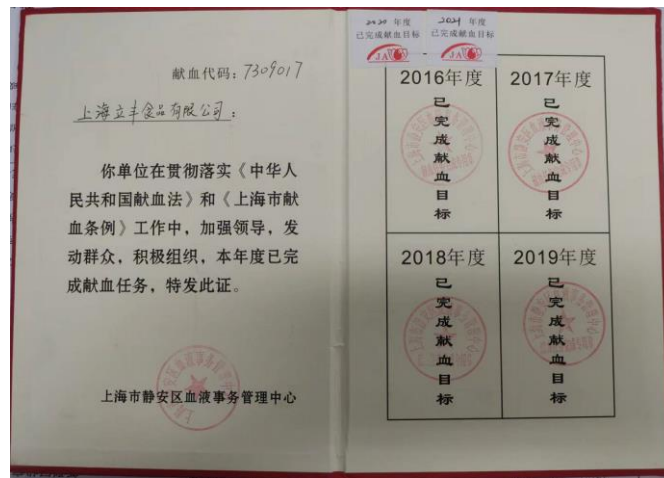 献血代码：7309017
上海立丰食品有限公司：
你单位在贯彻落实《中华人
民共和国献血法》和《上海市献
血条例》工作中，加强领导，发
动群众，积极组织，本年度已完
成献血任务，特发此证。
上海市静安区血液事务管理中心
2020 年度
已完成献血目标
JA
2021 年度
已完成献血目标
JA
2016年度
已完成献血目标
2017年度
已完成献血目标
2018年度
已完成献血目标
2019年度
已完成献血目标